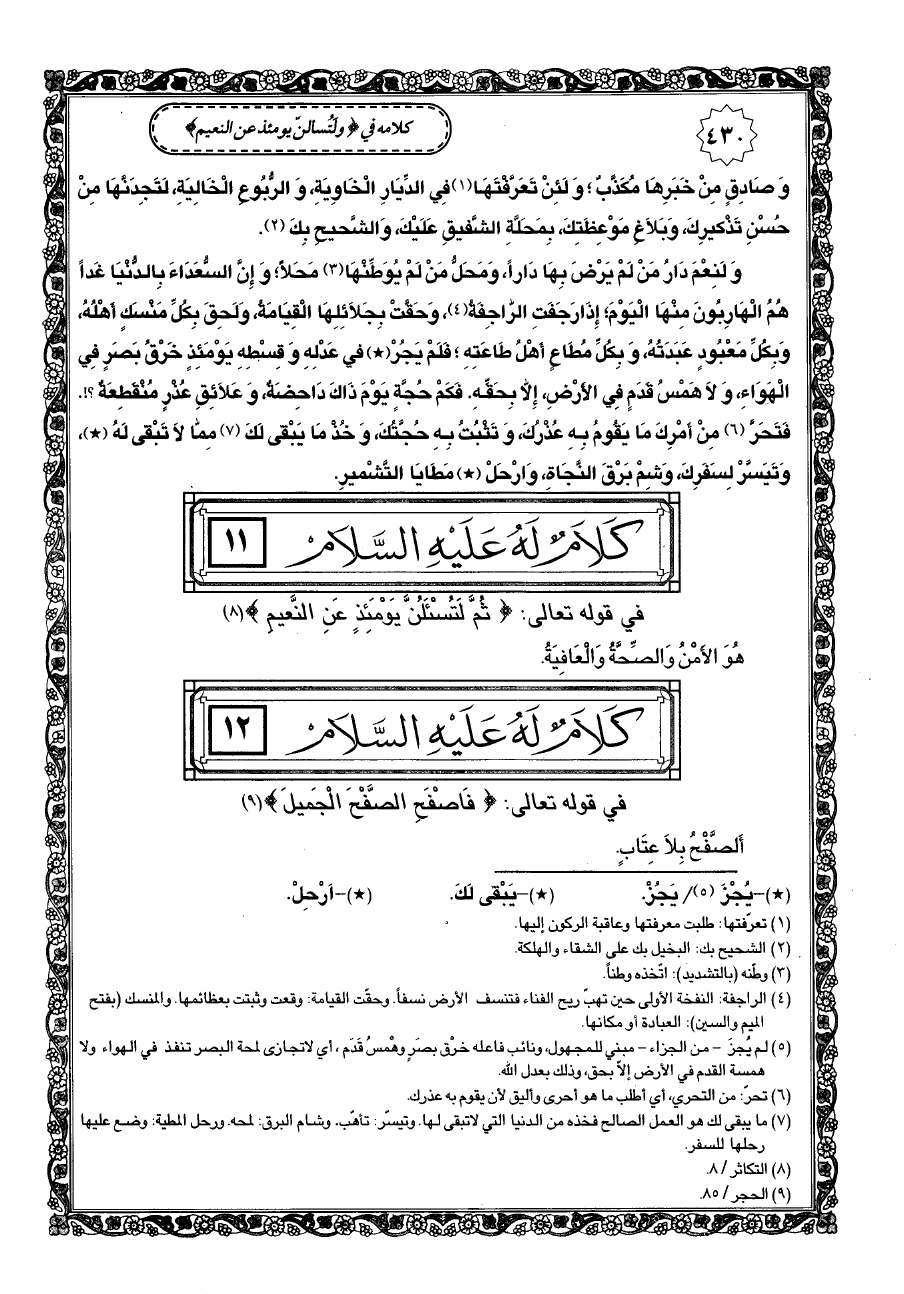 ٤٣٠
كلامه في ﴿ ولَتُسالنّ يومئذ عن النعيم﴾
وَ صَادِقٍ مِنْ خَبَرِهَا مُكَذَّبٌ ؛ وَ لَئِنْ تَعَرَّفْتَهَا (١) في الدِّيَارِ الْخَاوِيَةِ، وَ الرُّبُوعِ الْخَالِيَةِ، لَتَجِدَنَّهَا مِنْ
حُسْنِ تَذْكيرِكَ، وَبَلَاغِ مَوْعِظَتِكَ، بِمَحَلَّةِ الشَّفيقِ عَلَيْكَ، وَالشَّحيحِ بِكَ (٢).
وَ لَنِعْمَ دَارُ مَنْ لَمْ يَرْضَ بِهَا دَاراً، وَمَحَلُّ مَنْ لَمْ يُوَطِّنْهَا (٣) مَحَلاً؛ وَ إِنَّ السُّعَدَاءَ بِالدُّنْيَا غَداً
هُمُ الْهَارِبُونَ مِنْهَا الْيَوْمَ؛ إِذَا رَجَفَتِ الرّاجِفَةُ (٤)، وَ حَقَّتْ بِجَلَائِلِهَا الْقِيَامَةُ، وَلَحِقَ بِكُلِّ مَنْسَكٍ أَهْلُهُ،
وَبِكُلِّ مَعْبُودٍ عَبَدَتُهُ، وَ بِكُلِّ مُطَاعٍ أَهْلُ طَاعَتِهِ ؛ فَلَمْ يَجُرْ (★) في عَدْلِهِ وَ قِسْطِهِ يَوْمَئِذٍ خَرْقُ بَصَرٍ فِي
الْهَوَاءِ، وَ لَا هَمْسُ قَدَمٍ فِي الأَرْضِ، إِلاَّ بِحَقِّهِ. فَكَمْ حُجَّةٍ يَوْمَ ذَاكَ دَاحِضَةٌ، وَ عَلَائِقِ عُذْرٍ مُنْقَطِعَةٌ ؟!.
فَتَحَرَّ (٦) مِنْ أَمْرِكَ مَا يَقُومُ بِهِ عُذْرُكَ، وَ تَثْبُتُ بِهِ حُجَّتُكَ، وَ خُذْ مَا يَبْقَى لَكَ (٧) مِمّا لَا تَبْقَى لَهُ (★)،
وَتَيَسَّرْ لِسَفَرِكَ، وَشِمْ بَرْقَ النَّجَاةِ، وَارْحَلْ (★) مَطَايَا التَّشْميرِ.
كَلَامٌ لَهُ عَلَيْهِ السَّلَامُ ١١
في قوله تعالى: ﴿ ثُمَّ لَتُسْئَلُنَّ يَوْمَئِذٍ عَنِ النَّعيمِ ﴾(٨)
هُوَ الأَمْنُ وَالصِّحَّةُ وَالْعَافِيَةُ.
كَلَامٌ لَهُ عَلَيْهِ السَّلَامُ ١٢
في قوله تعالى: ﴿ فَاصْفَحِ الصَّفْحَ الْجَميلَ ﴾(٩)
أَلصَّفْحُ بِلَا عِتَابٍ.
(★)–يُجْزَ (٥)/ يَجُزْ. (★)–يَبْقَى لَكَ. (★)–اَرْحِلْ.
(١) تعرّفتها: طلبت معرفتها وعاقبة الركون إليها.
(٢) الشحيح بك: البخيل بك على الشقاء والهلكة.
(٣) وطّنه (بالتشديد): اتّخذه وطناً.
(٤) الراجفة: النفخة الأولى حين تهبّ ريح الفناء فتنسف الأرض نسفاً. وحقّت القيامة: وقعت وثبتت بعظائمها. والمنسك (بفتح
الميم والسين): العبادة أو مكانها.
(٥) لم يُجزَ – من الجزاء – مبني للمجهول، ونائب فاعله خرْق بصَرٍ وهْمسُ قَدَم ، أي لاتجازى لمحة البصر تنفذ في الهواء ولا
همسة القدم في الأرض إلاّ بحق، وذلك بعدل الله.
(٦) تحرّ: من التحري، أي أطلب ما هو أحرى وأليق لأن يقوم به عذرك.
(٧) ما يبقى لك هو العمل الصالح فخذه من الدنيا التي لاتبقى لها. وتيسّر: تأهّب. وشام البرق: لمحه. ورحل المطية: وضع عليها
رحلها للسفر.
(٨) التكاثر / ٨.
(٩) الحجر / ٨٥.